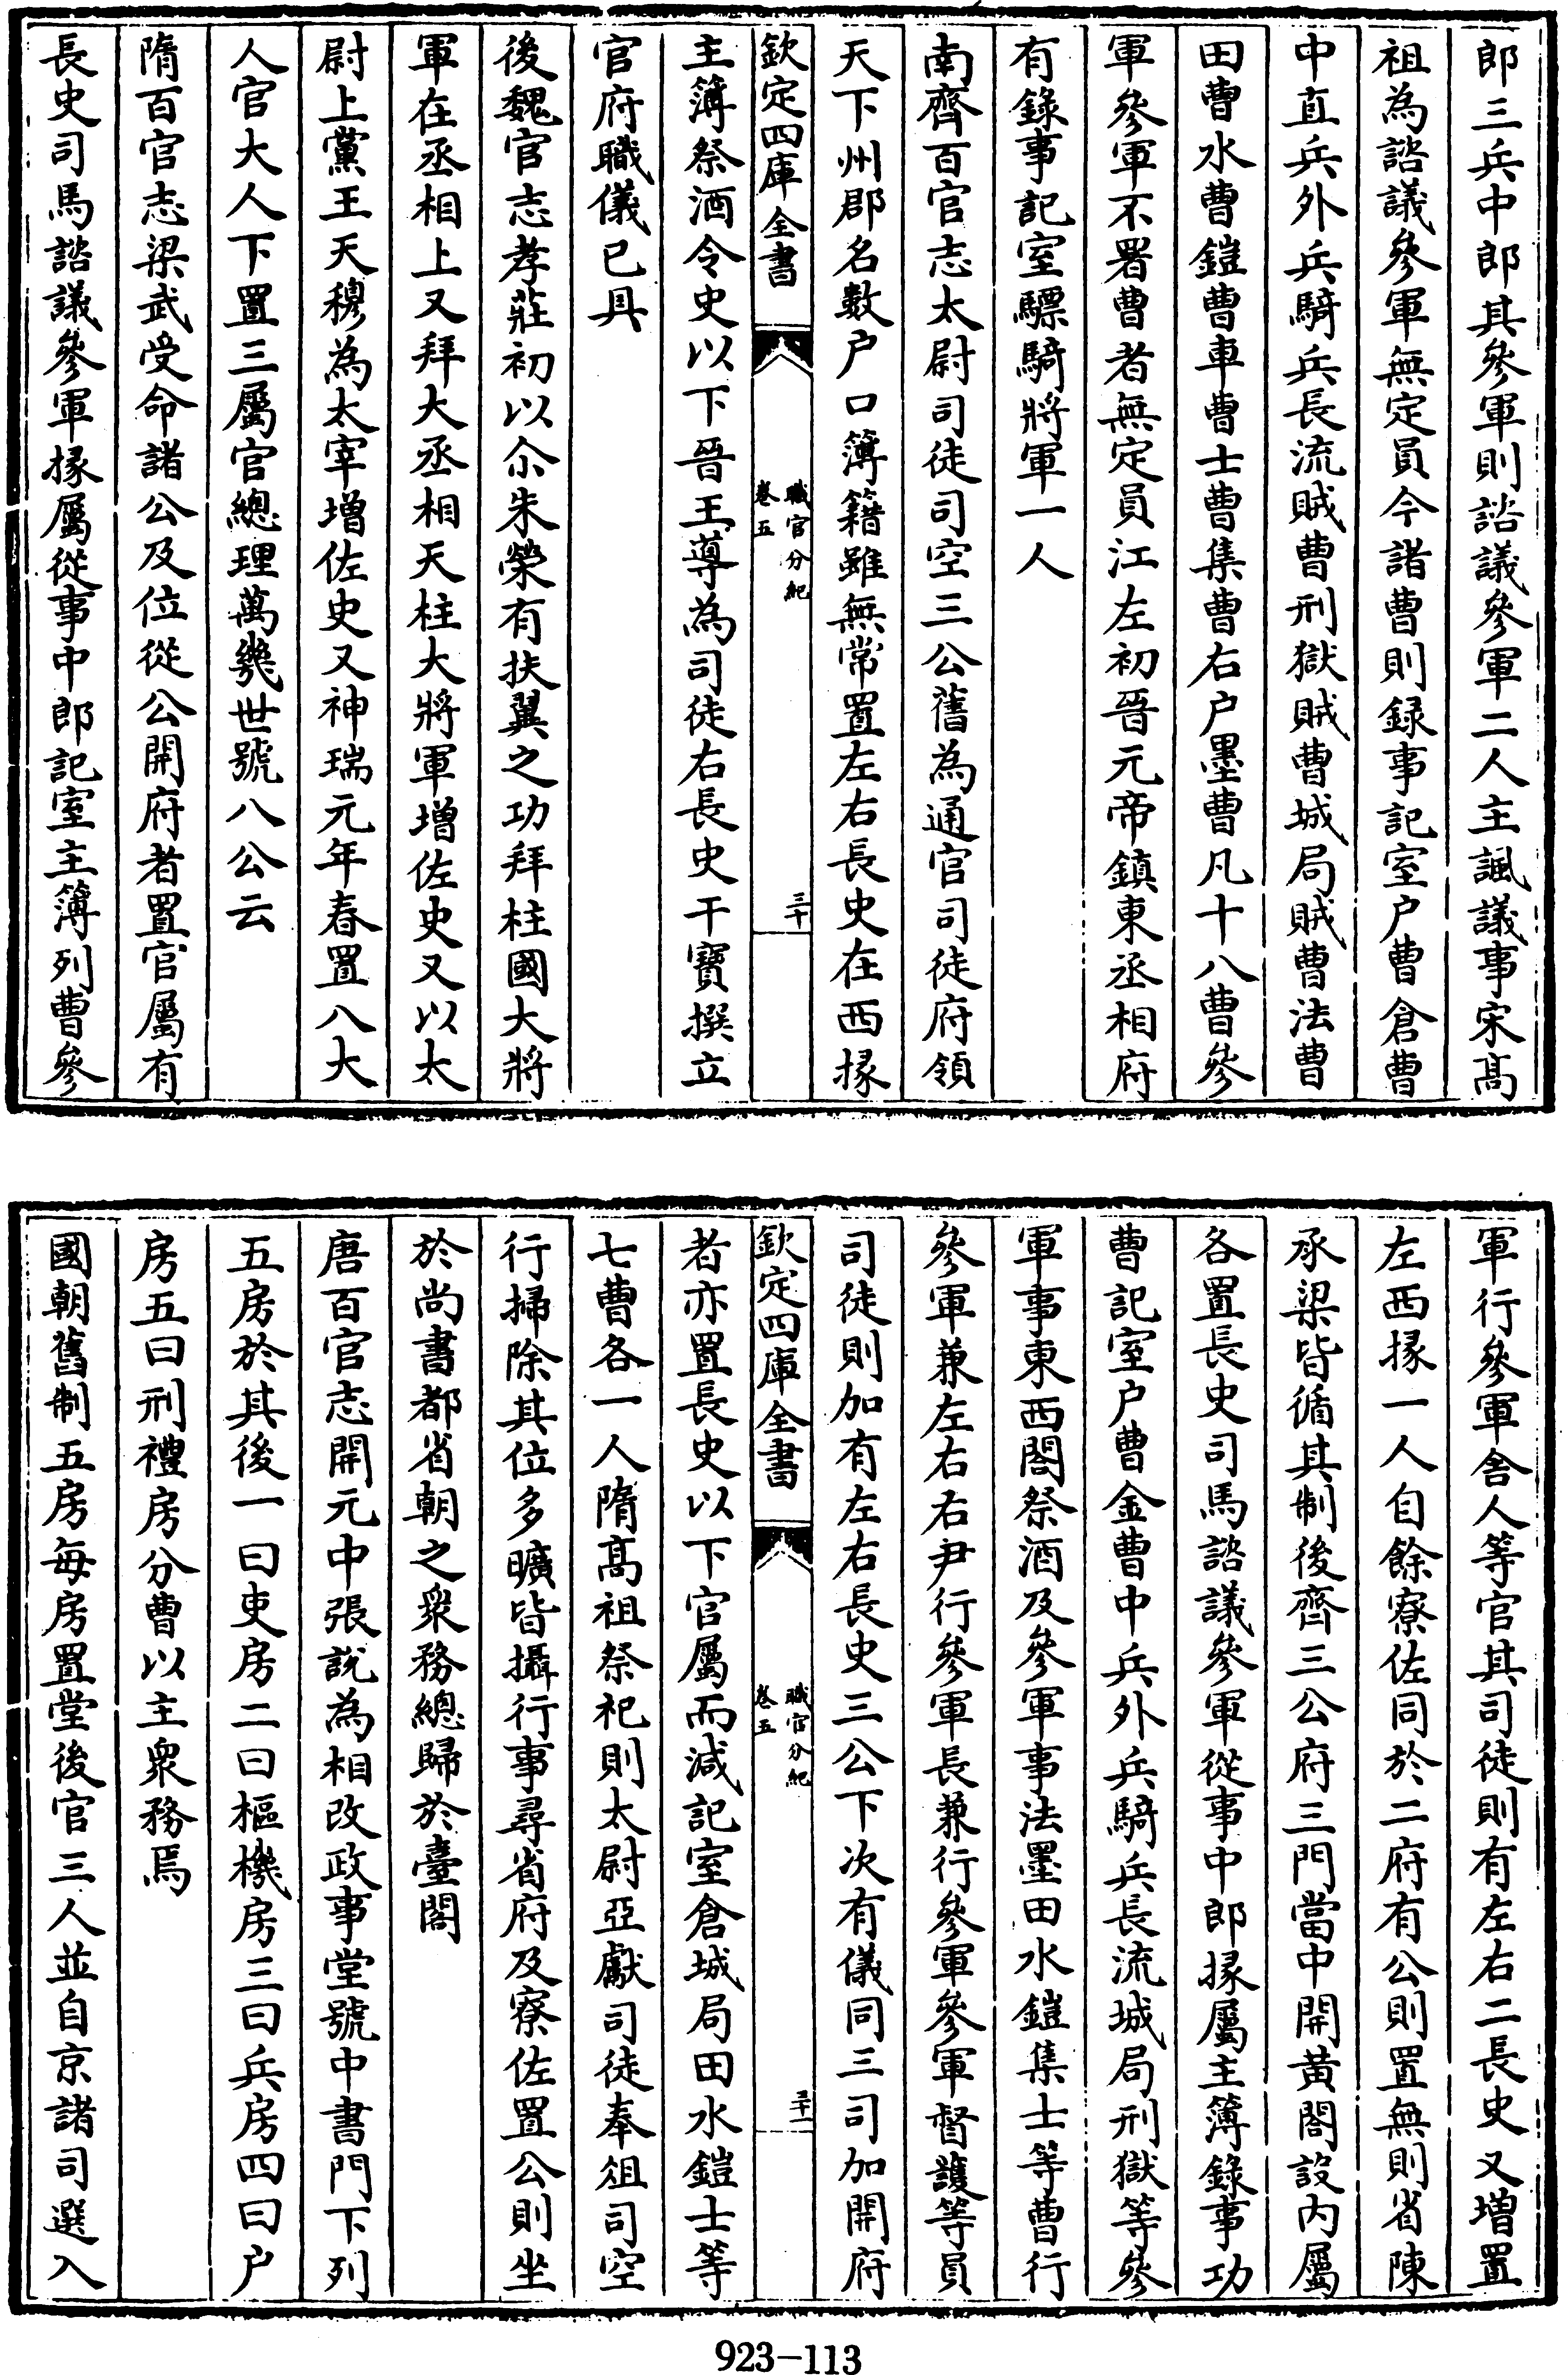 郎三兵中郎其參軍則諮議參軍二人主諷議事宋髙
祖為諮議參軍無定員今諸曹則録事記室户曹倉曹
中直兵外兵騎兵長流賊曹刑獄賊曹城局賊曹法曹
田曹水曹鎧曹車曹士曹集曹右户墨曹凡十八曹參
軍參軍不署曹者無定員江左初晉元帝鎮東丞相府
有錄事記室驃騎將軍一人
南齊百官志太尉司徒司空三公舊為通官司徒府領
天下州郡名數户口簿籍雖無常置左右長史在西掾
欽定四庫全書
職官分紀
卷五
三十
主簿祭酒令史以下晉王導為司徒右長史干寶撰立
官府職儀已具
後魏官志孝莊初以尒朱榮有扶翼之功拜柱國大將
軍在丞相上又拜大丞相天柱大將軍增佐史又以太
尉上黨王天穆為太宰增佐史又神瑞元年春置八大
人官大人下置三屬官總理萬幾世號八公云
隋百官志梁武受命諸公及位從公開府者置官屬有
長史司馬諮議參軍掾屬從事中郎記室主簿列曹參
軍行參軍舍人等官其司徒則有左右二長史又增置
左西掾一人自餘寮佐同於二府有公則置無則省陳
承梁皆循其制後齊三公府三門當中開黄閤設内屬
各置長史司馬諮議參軍從事中郎掾屬主簿錄事功
曹記室户曹金曹中兵外兵騎兵長流城局刑獄等參
軍事東西閤祭酒及參軍事法墨田水鎧集士等曹行
參軍兼左右右尹行參軍長兼行參軍參軍督護等員
司徒則加有左右長史三公下次有儀同三司加開府
欽定四庫全書
職官分紀
卷五
三十一
者亦置長史以下官屬而減記室倉城局田水鎧士等
七曹各一人隋髙祖祭祀則太尉亞獻司徒奉俎司空
行掃除其位多曠皆攝行事尋省府及寮佐置公則坐
於尚書都省朝之衆務總歸於臺閣
唐百官志開元中張說為相改政事堂號中書門下列
五房於其後一曰吏房二曰樞機房三曰兵房四曰户
房五曰刑禮房分曹以主衆務焉
國朝舊制五房每房置堂後官三人並自京諸司選入
923-113